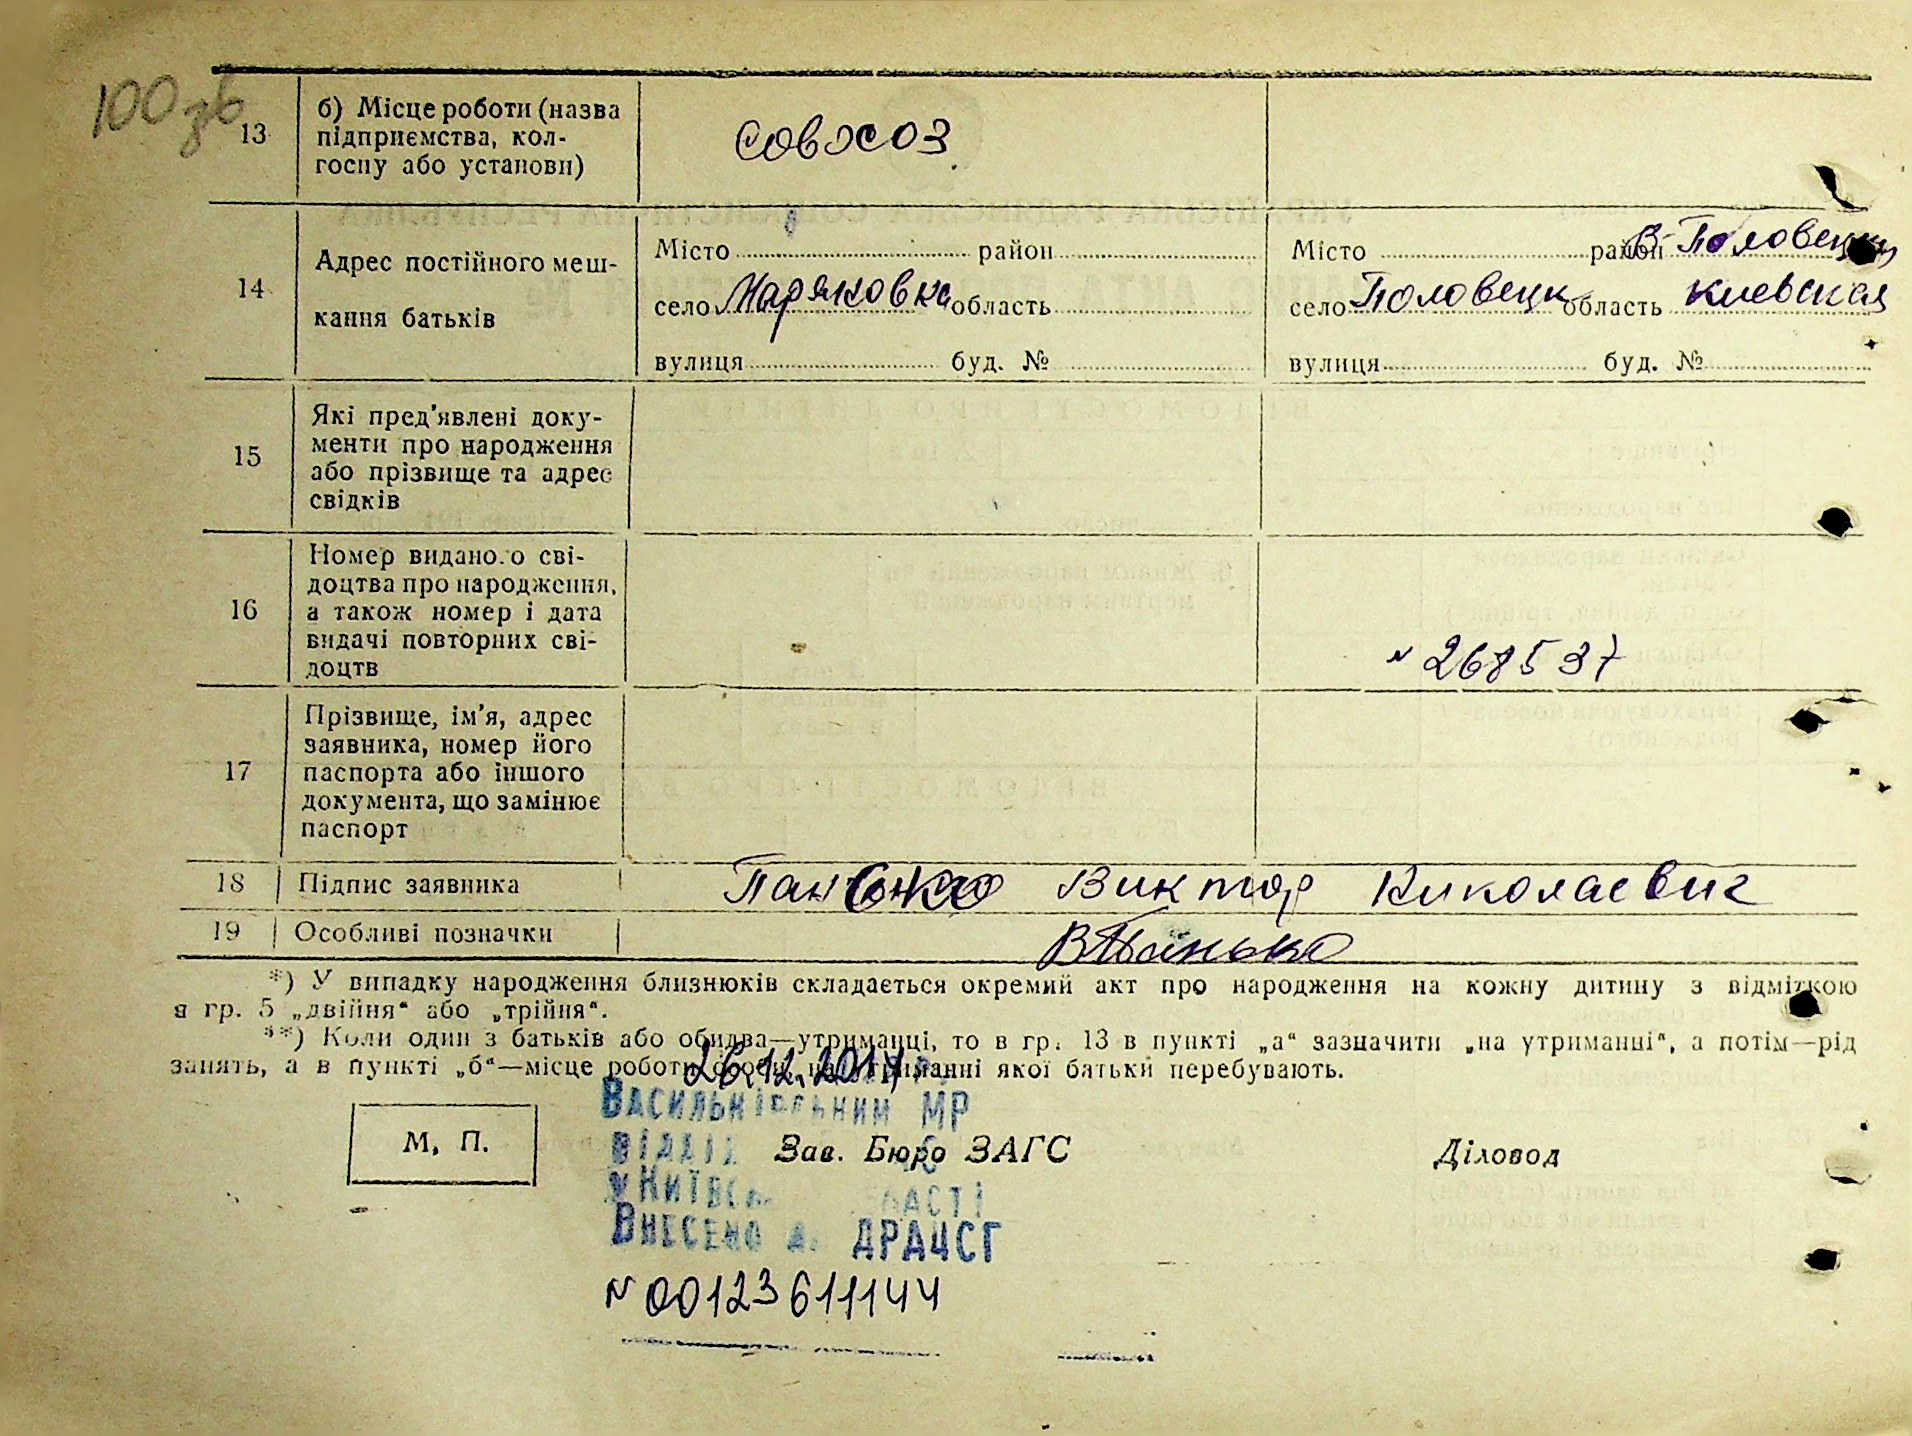 100 зв
13 б) Місце роботи (назва
підприємства, кол-
госпу або установи)
совхоз
14 Адрес постійного меш-
кання батьків
Місто район Місто район В-Половецкий
село Маряновка область село Половецк область Киевская
вулиця буд. № вулиця буд. №
15 Які пред'явлені доку-
менти про народження
або прізвище та адрес
свідків
16 Номер виданого сві-
доцтва про народження,
а також номер і дата
видачі повторних сві-
доцтв
N 268537
17 Прізвище, ім'я, адрес
заявника, номер його
паспорта або іншого
документа, що замінює
паспорт
18 Підпис заявника Панько Виктор Николаевич
19 Особливі позначки ВПанько
*) У випадку народження близнюків складається окремий акт про народження на кожну дитину з відміткою
в гр. 5 „двійня“ або „трійня“.
**) Коли один з батьків або обидва—утриманці, то в гр. 13 в пункті „а“ зазначити „на утриманні“, а потім—рід
занять, а в пункті „б“—місце роботи на утриманні якої батьки перебувають.
26.12.2017
Васильківський МР
відділ
М. П. Зав. Бюро ЗАГС Діловод
у Київській області
Внесено до ДРАЦСГ
N 00123611144